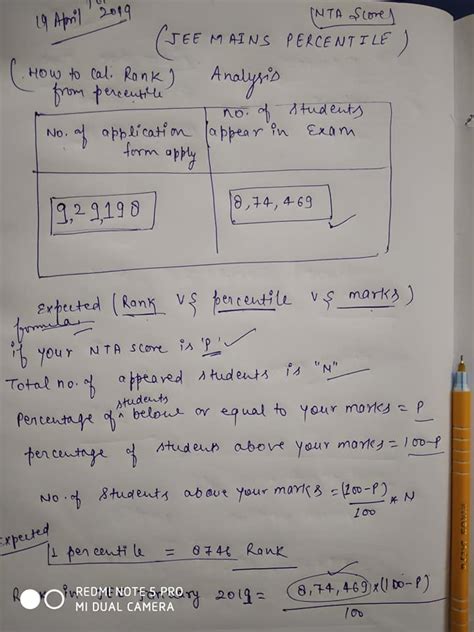 19 April 2019
(NTA Score)
(JEE MAINS PERCENTILE)
(How to cal. Rank) Analysis
from percentile
No. of application
form apply
no. of students
appear in Exam
9,29,198
8,74,469
Expected (Rank vs percentile vs marks)
formula
if your NTA score is 'P'
Total no. of appeared students is "N"
Percentage of students below or equal to your marks = P
percentage of students above your marks = 100-P
No. of students above your marks = (100-P)/100 * N
Expected
1 percentile = 8746 Rank
Rank in JEE February 2019 = 8,74,469 * (100-P)
100
REDMI NOTE 5 PRO
MI DUAL CAMERA